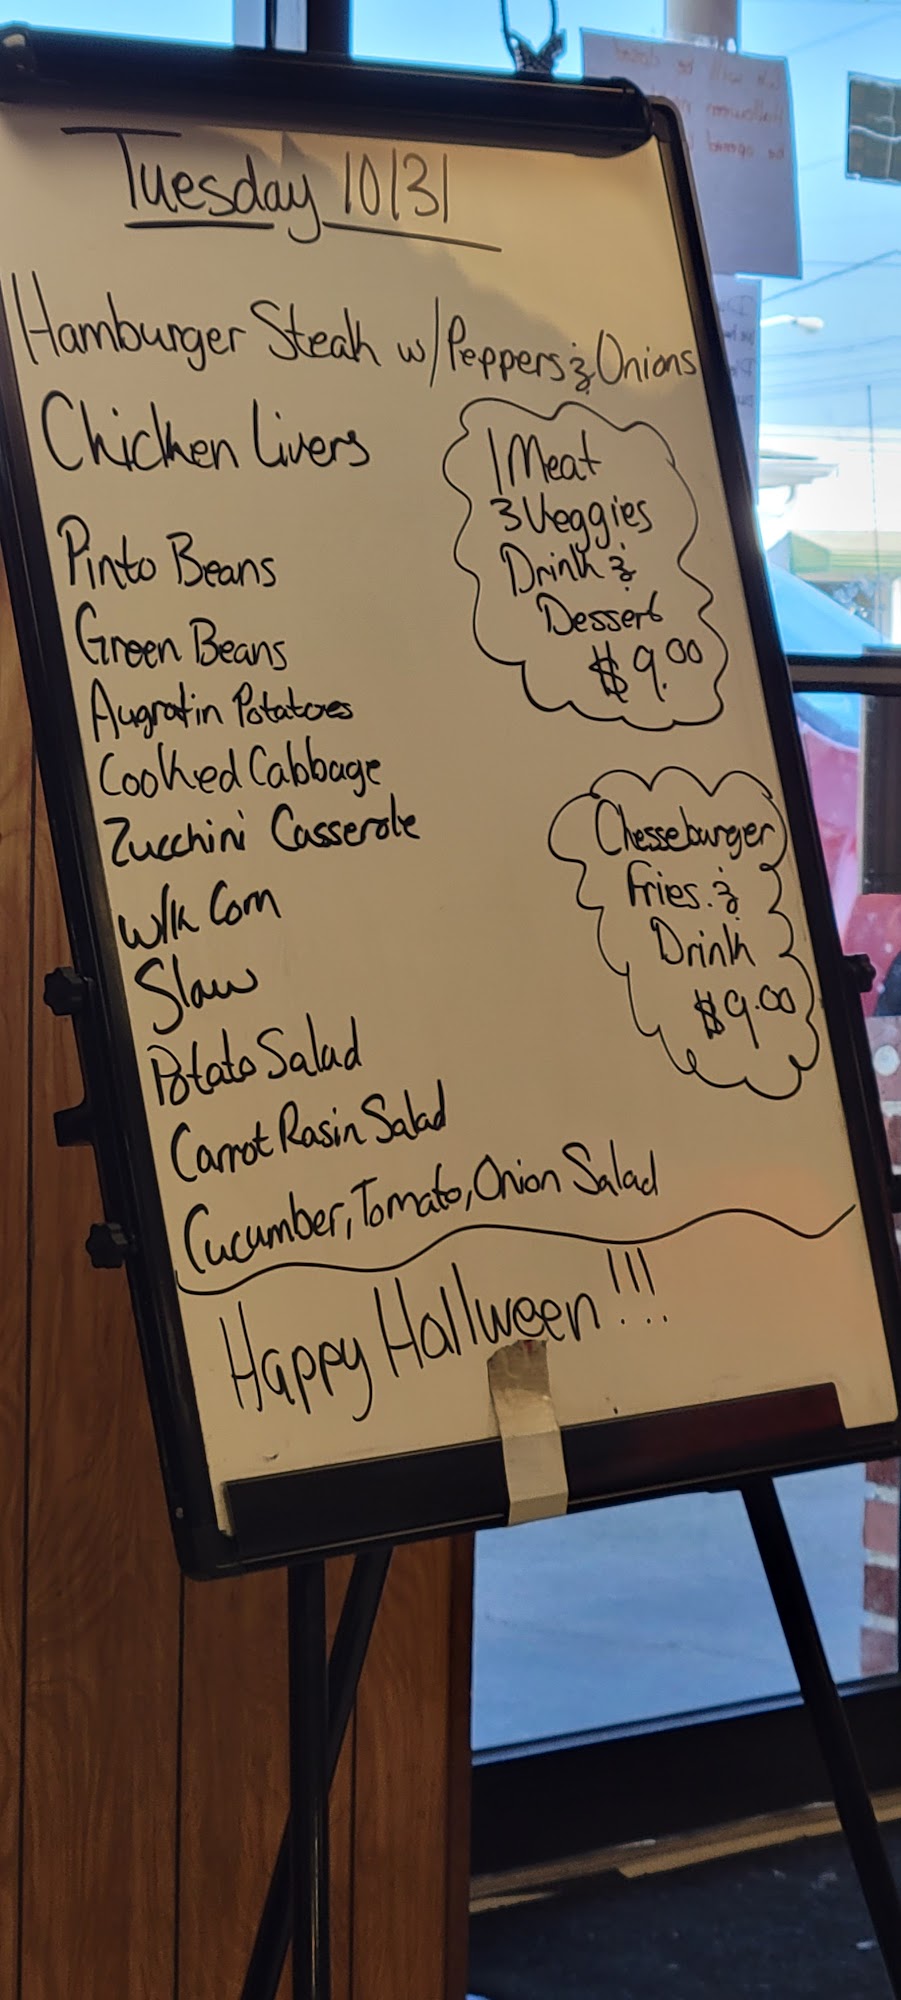 Tuesday 10/31
Hamburger Steak w/Peppers & Onions
Chicken Livers
1 Meat
3 Veggies
Drink &
Dessert
$9.00
Pinto Beans
Green Beans
Augratin Potatoes
Cooked Cabbage
Zucchini Casserole
W/k Corn
Slaw
Potato Salad
Carrot Rasin Salad
Cucumber, Tomato, Onion Salad
Chesseburger
Fries. &
Drink
$9.00
Happy Hallween!!!
We will be closed
Halloween
be opened